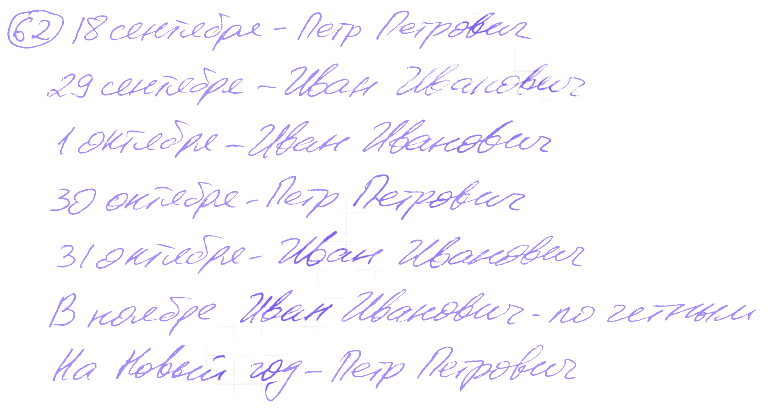 62 18 сентября - Петр Петрович
29 сентября - Иван Иванович
1 октября - Иван Иванович
30 октября - Петр Петрович
31 октября - Иван Иванович
В ноябре Иван Иванович - по четным
На Новый год - Петр Петрович